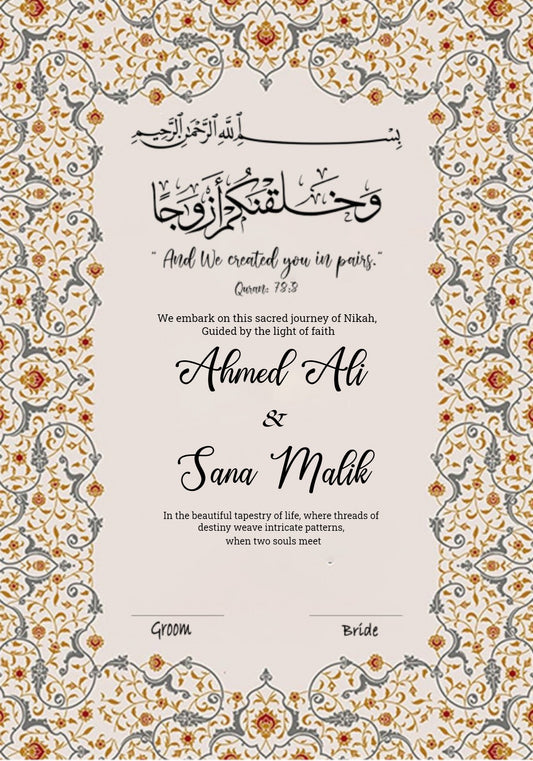 بِسْمِ اللهِ الرَّحْمٰنِ الرَّحِيمِ
وَخَلَقْنٰكُمْ أَزْوٰجًا
" And We created you in pairs."
Quran: 78:8
We embark on this sacred journey of Nikah,
Guided by the light of faith
Ahmed Ali
&
Sana Malik
In the beautiful tapestry of life, where threads of
destiny weave intricate patterns,
when two souls meet
Groom Bride